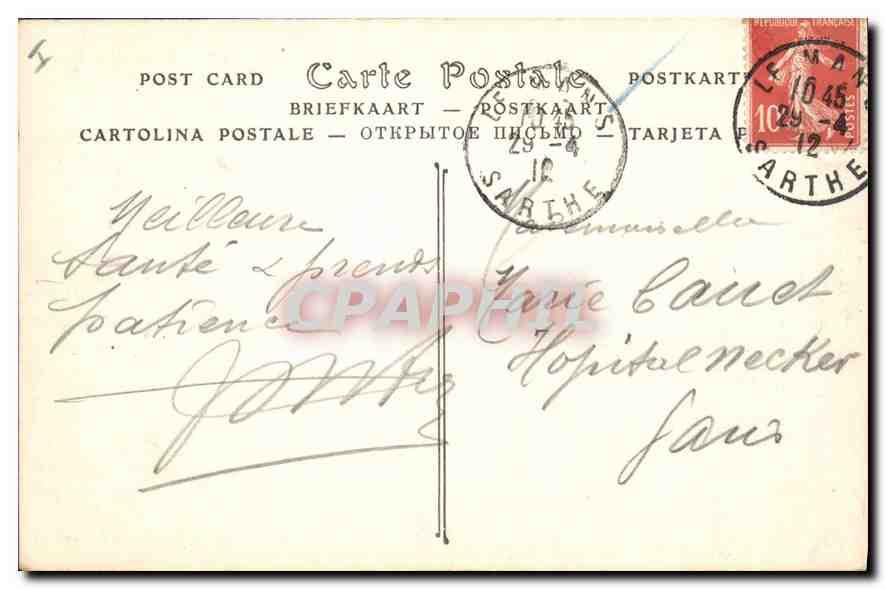 RÉPUBLIQUE FRANÇAISE
POST CARD Carte Postale POSTKARTE
BRIEFKAART — POSTKAART
CARTOLINA POSTALE — ОТКРЫТОЕ ПИСЬМО — TARJETA P
LE MANS
10 45
29 - 4
12
SARTHE
LE MANS
10 45
29 - 4
12
SARTHE
10
POSTES
Meilleure
Santé & prends
patience
Mademoiselle
Marie Cauet
Hopital Necker
Paris
CPAPHIL